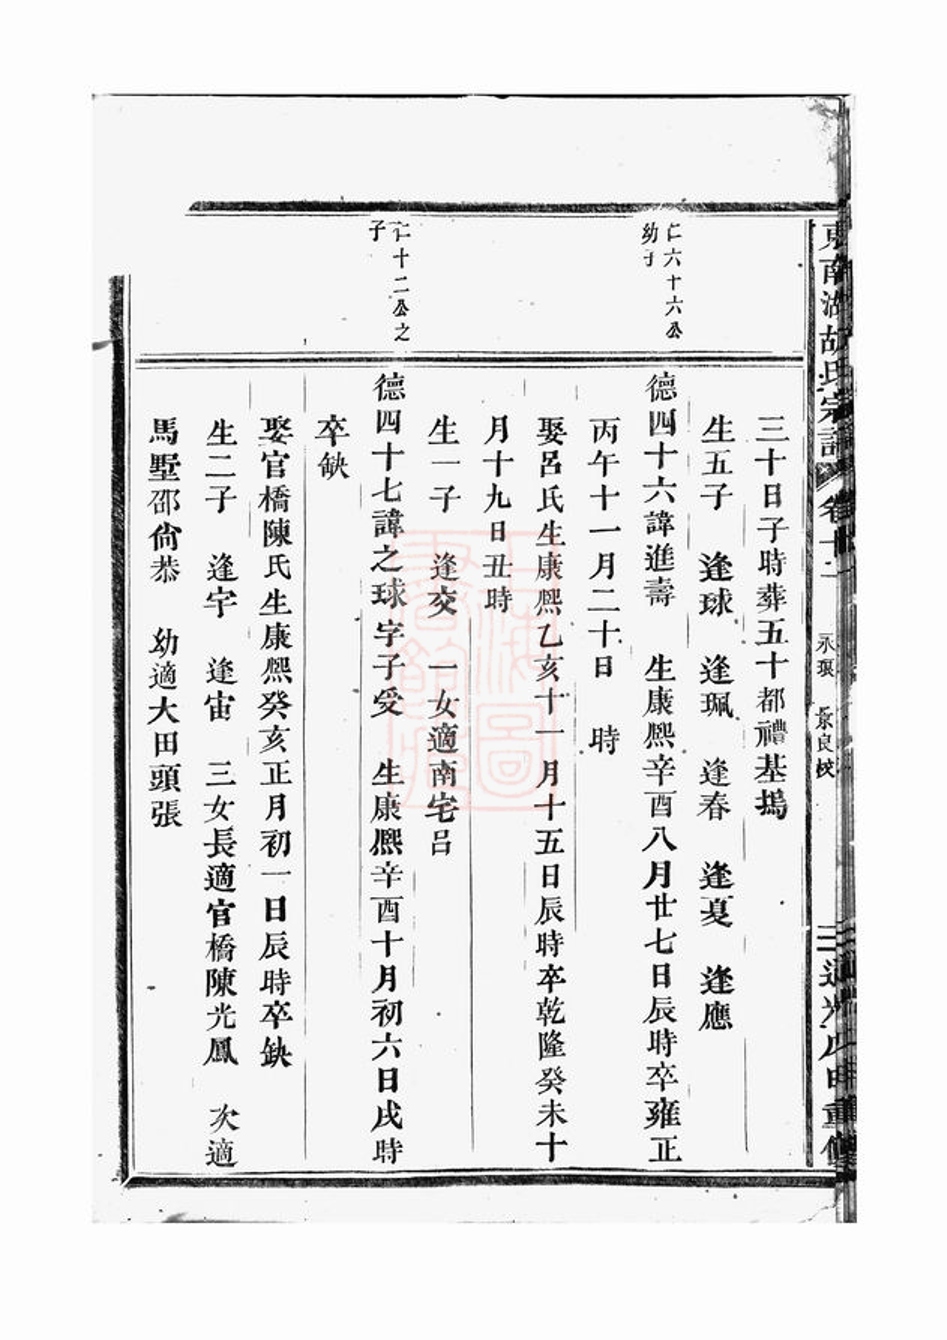 東南湖胡氏宗譜 卷十二 永琅 景良校 三 道光戊申重修
三十日子時葬五十都禮基塢
生五子 逢球 逢珮 逢春 逢夏 逢應
仁六十六公
幼子
德四十六諱進壽 生康熙辛酉八月廿七日辰時卒雍正
丙午十一月二十日 時
娶呂氏生康熙乙亥十一月十五日辰時卒乾隆癸未十
月十九日丑時
生一子 逢交 一女適南宅呂
仁十二公之
子
德四十七諱之球字子受 生康熙辛酉十月初六日戌時
卒缺
娶官橋陳氏生康熙癸亥正月初一日辰時卒缺
生二子 逢宇 逢宙 三女長適官橋陳光鳳 次適
馬墅邵尙恭 幼適大田頭張
上海圖書館藏